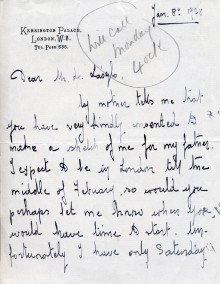 Jan. 8: 19
KENSINGTON PALACE,
LONDON, W.8.
TEL. PARK
will call
Monday
4 o'c
Dear Mr de Laszlo.
My mother tells me that
you have very kindly consented to
make a sketch of me for my father.
I expect to be in London till the
middle of February, so would you
perhaps let me know when you
would have time to start. Un-
fortunately I have only Saturday